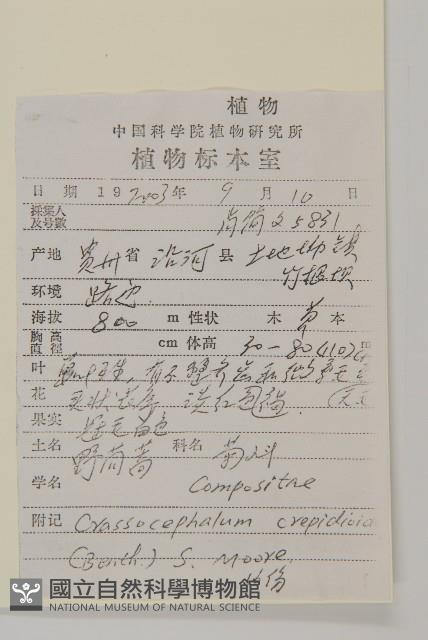 植物
中国科学院植物研究所
植物标本室
日期 19 2003年 9月 10日
採集人
及号數 5831
产地 贵州省 沿河县 土地坳镇
竹根坝
环境 路边
海拔 800 m 性状 木 草 本
胸高
直径 cm 体高 30-80(110)cm
叶
花 头状花序 淡红色
果实 冠毛白色
土名 野茼蒿 科名 菊科
学名 Compositae
附记 Crassocephalum crepidioid
(Benth.) S. Moore
國立自然科學博物館
NATIONAL MUSEUM OF NATURAL SCIENCE